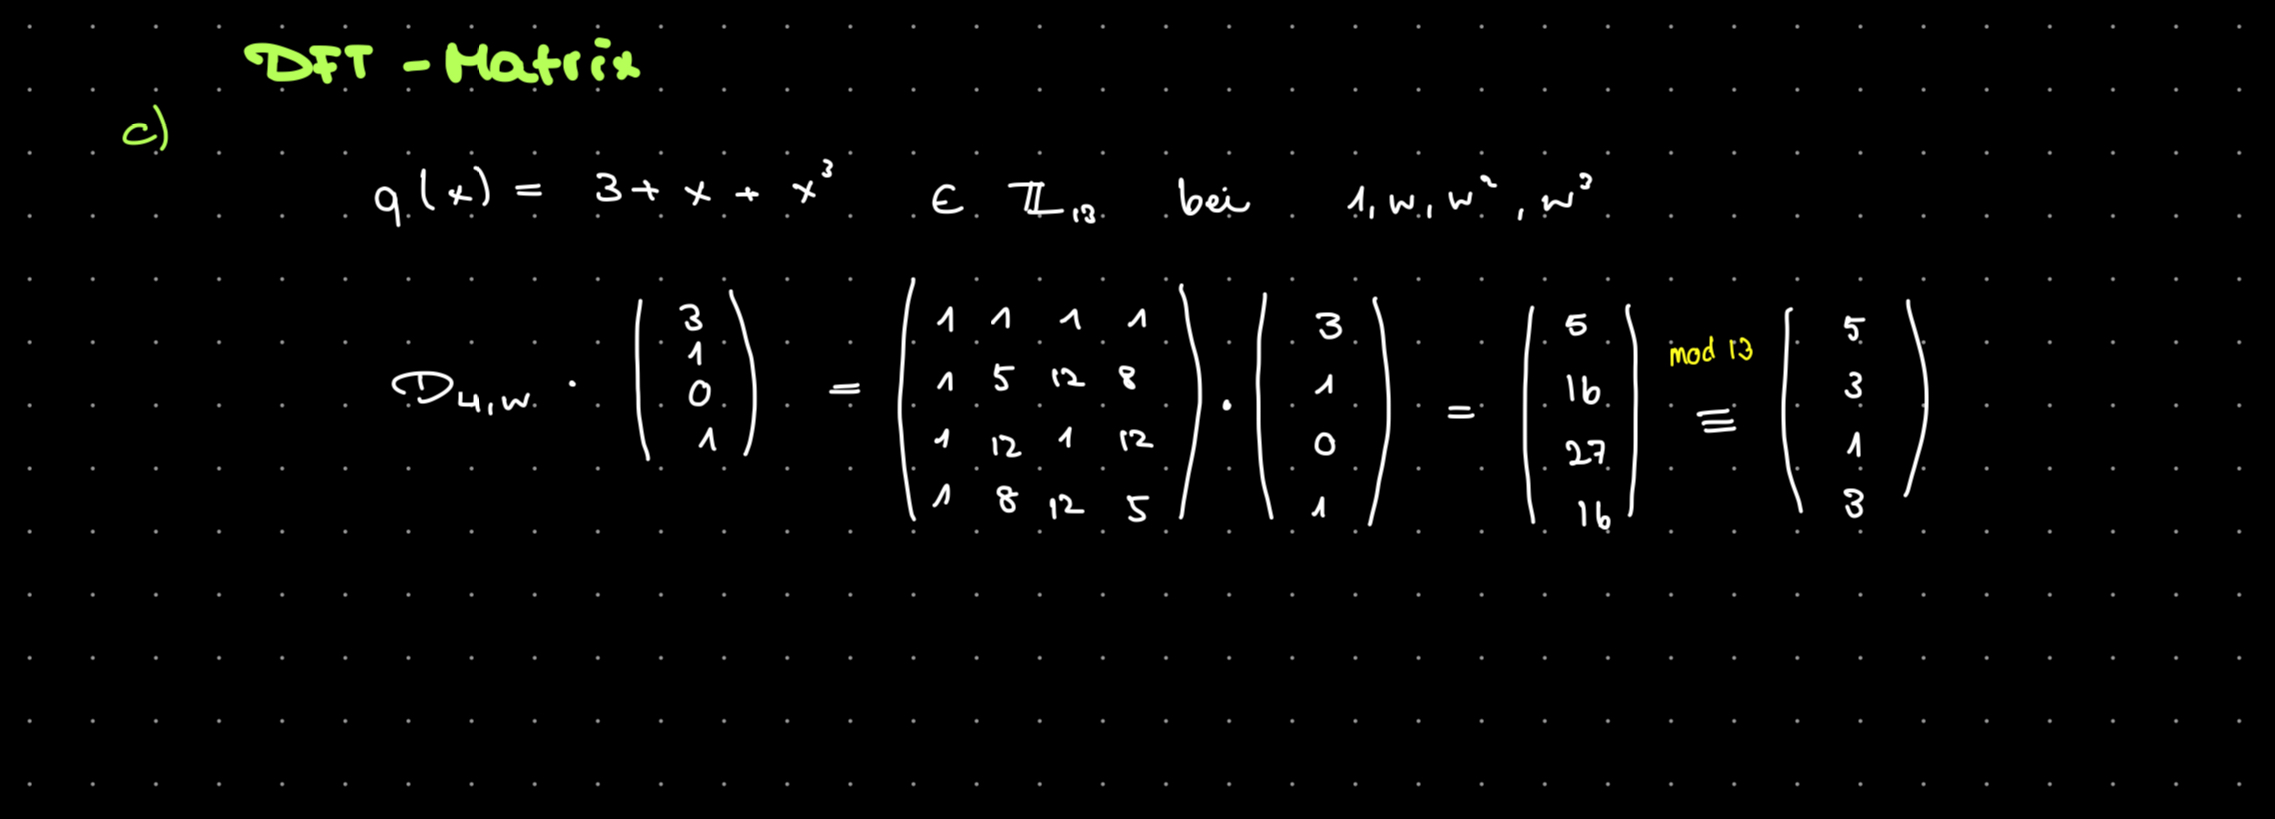 DFT - Matrix
c)
q(x) = 3 + x + x³ ∈ ℤ₁₃ bei 1, w, w², w³
D₄,w · (3 1 0 1) = (1 1 1 1 / 1 5 12 8 / 1 12 1 12 / 1 8 12 5) · (3 1 0 1) = (5 16 27 16) mod 13 ≡ (5 3 1 3)